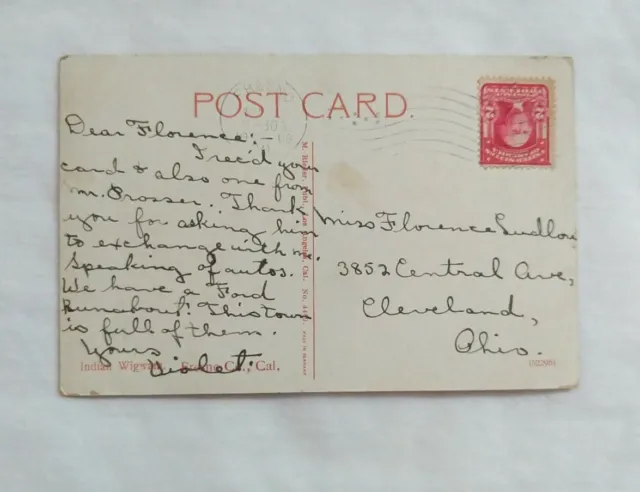 POST CARD.
Dear Florence:-
I rec'd your
card & also one from
Mr. Prosser. Thank
you for asking him
to exchange with me.
Speaking of autos.
We have a Ford
Runabout. This town
is full of them.
Yours
Violet.
Miss Florence Ludlow
3852 Central Ave,
Cleveland,
Ohio.
M. Rieder, Publ., Los Angeles, Cal. No.
Indian Wigwam, Fresno Co., Cal.
2 2